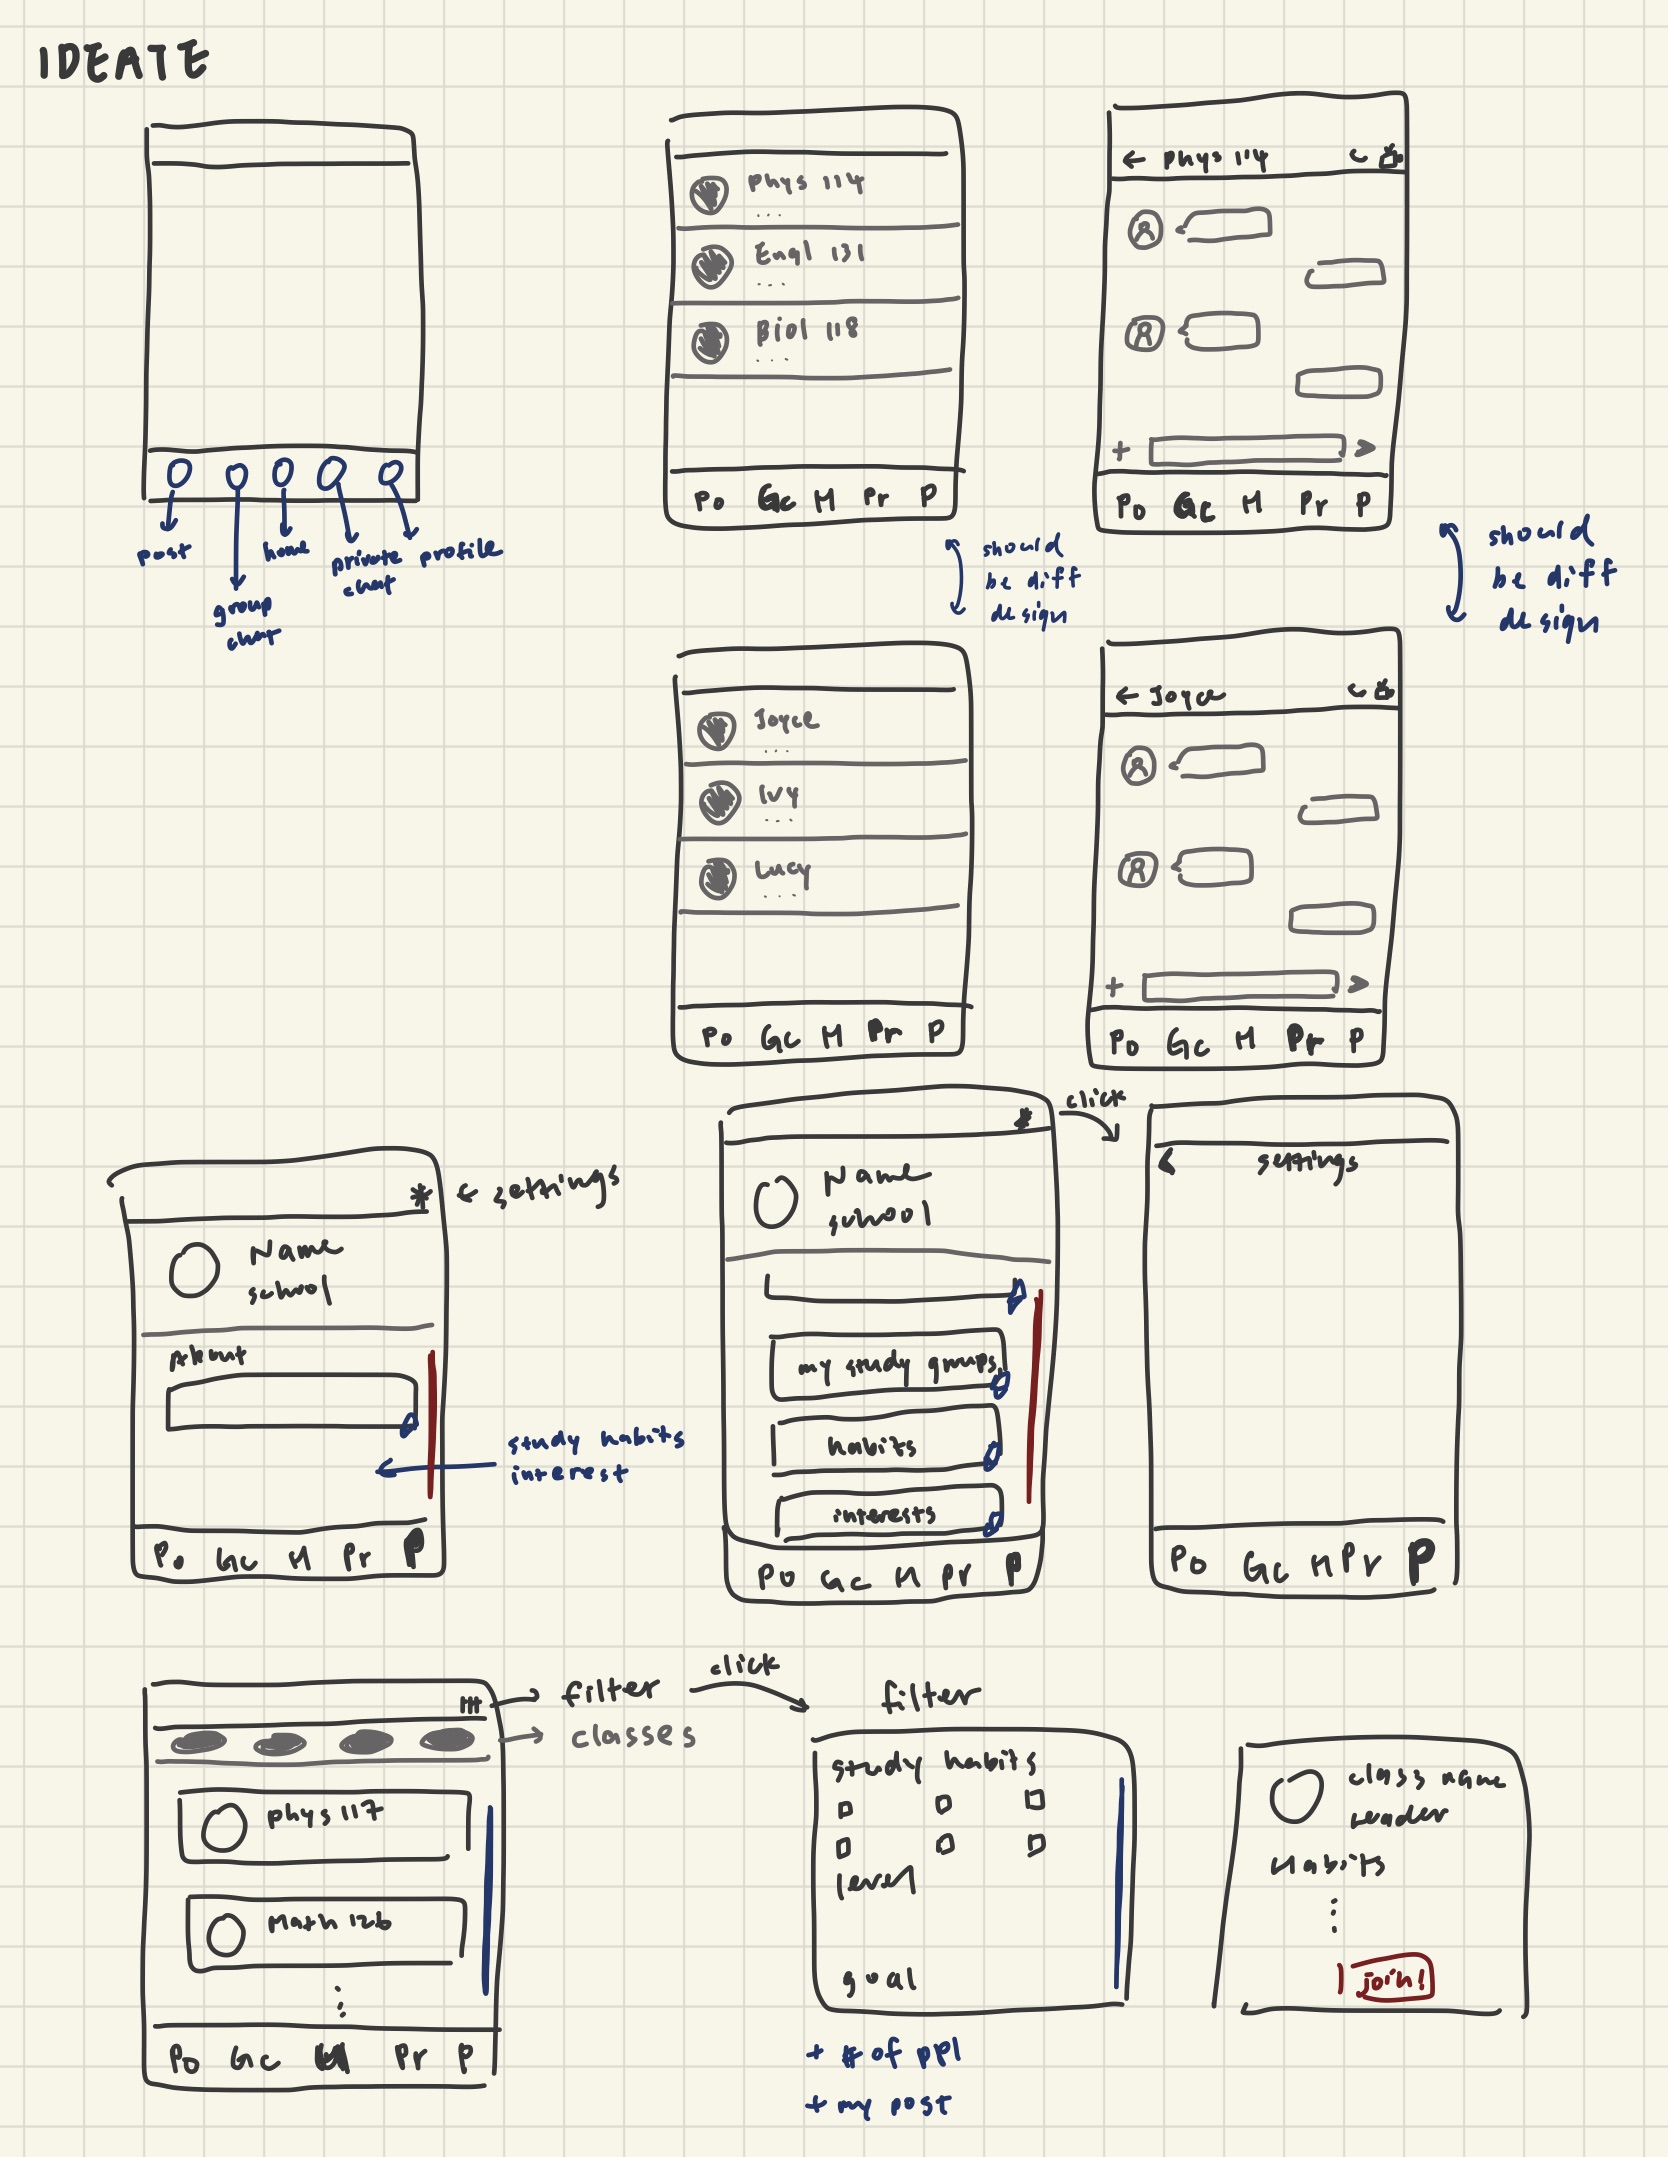 IDEATE
post
group
chat
home
private
chat
profile
Phys 114
...
Engl 131
...
Biol 118
...
Po Gc H Pr P
← Phys 114
+
Po Gc H Pr P
should
be diff
design
should
be diff
design
Joyce
...
Ivy
...
Lucy
...
Po Gc H Pr P
← Joyce
+
Po Gc H Pr P
* ← settings
Name
school
About
study habits
interest
Po Gc H Pr P
*
click
Name
school
my study groups
habits
interests
Po Gc H Pr P
settings
Po Gc H Pr P
filter
classes
click
Phys 117
Math 126
Po Gc H Pr P
filter
study habits
level
goal
+ # of ppl
+ my post
class name
Leader
Habits
join!